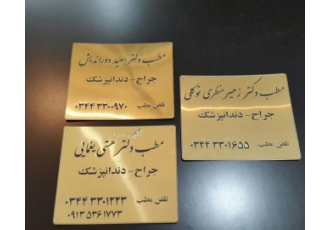 مطب دکتر حمید دوراندیش
جراح - دندانپزشک
تلفن مطب ۰۳۴۴۳۳۰۰۹۷۰
مطب دکتر زهیر منظری توکلی
جراح - دندانپزشک
تلفن مطب ۰۳۴۴۳۳۰۱۶۵۵
مطب دکتر مجتبی یغمایی
جراح - دندانپزشک
تلفن مطب ۰۳۴۴۳۳۰۱۲۲۳
۰۹۱۳۵۳۶۱۷۷۳